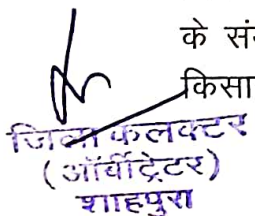 के सं
किसा
जिला कलक्टर
(ऑर्वीट्रेटर)
शाहपुरा